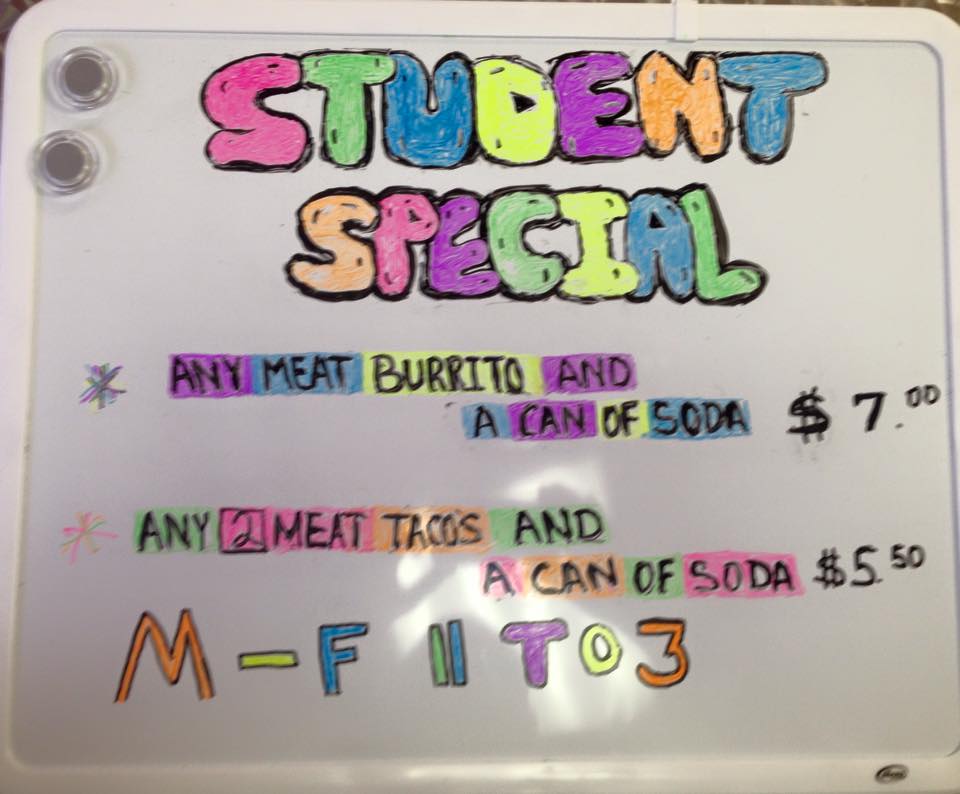 STUDENT
SPECIAL
* ANY MEAT BURRITO AND
A CAN OF SODA $ 7.00
* ANY 2 MEAT TACOS AND
A CAN OF SODA $5.50
M - F 11 TO 3